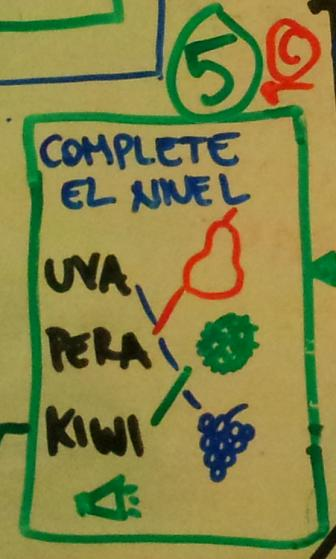 5
COMPLETE
EL NIVEL
UVA
PERA
KIWI